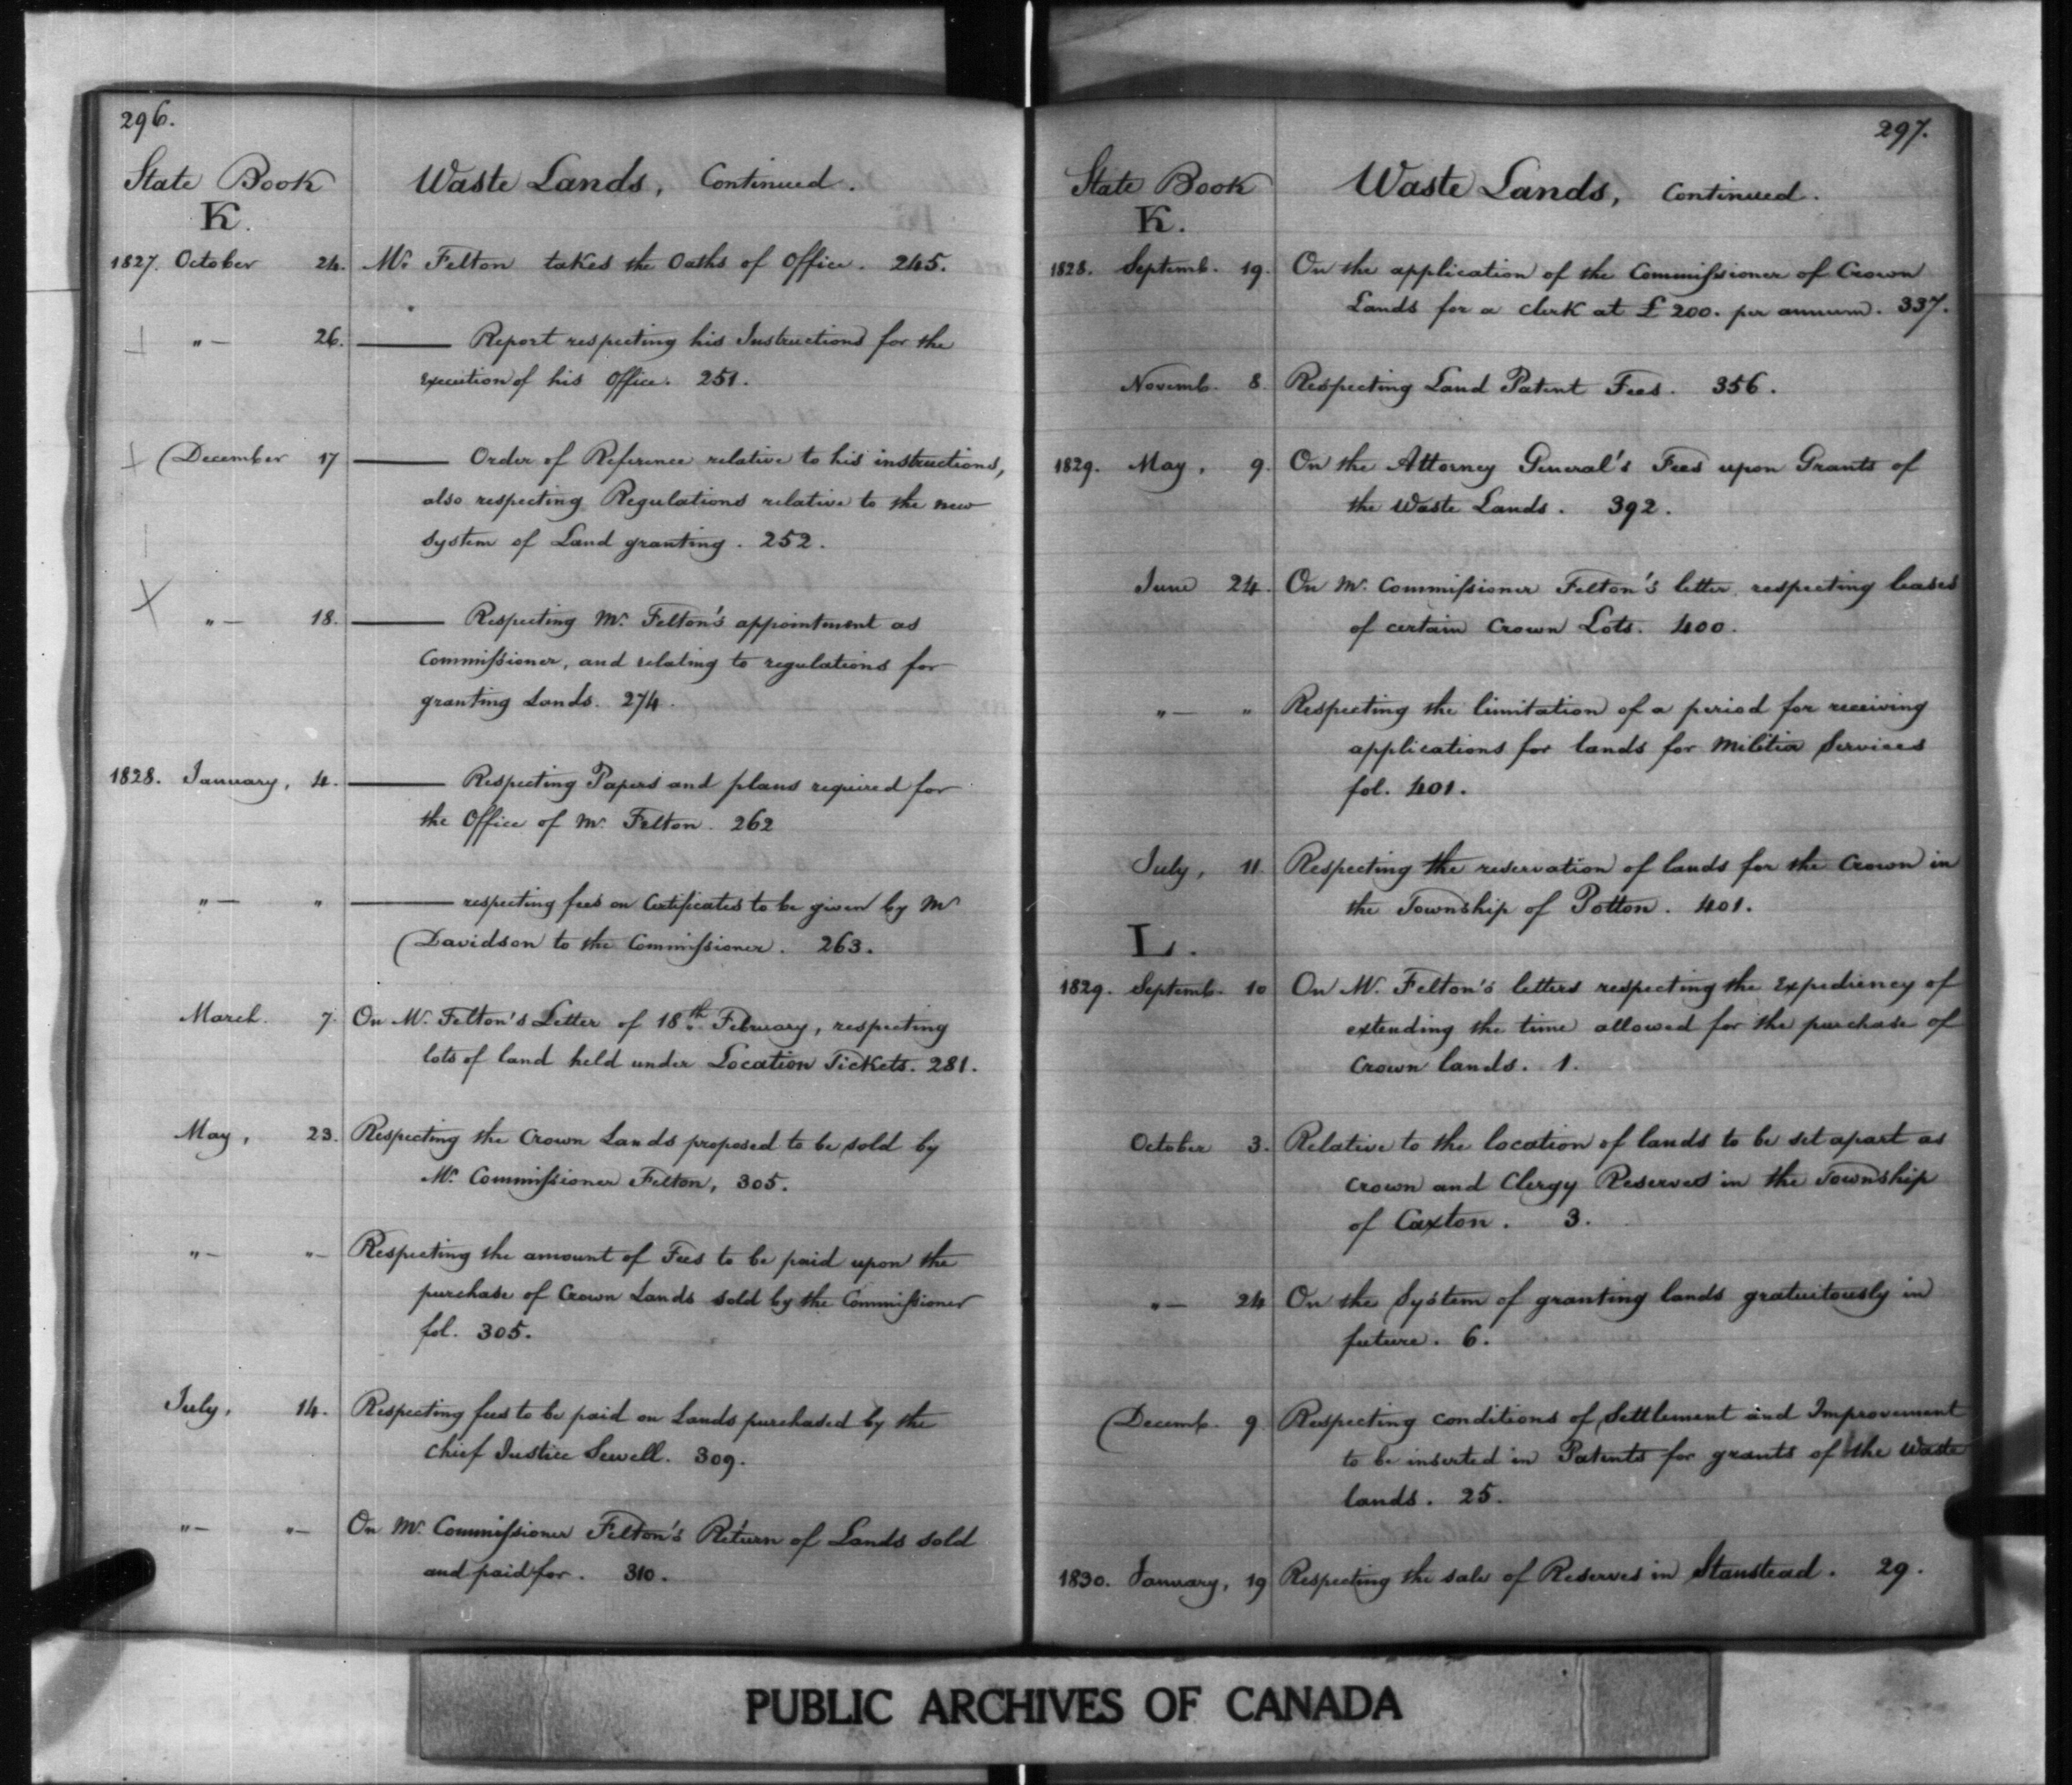 296.
State Book
K.
Waste Lands, Continued.
1827. October 24. Mr. Felton takes the Oaths of Office. 245.
"— 26. —— Report respecting his Instructions for the
execution of his Office. 251.
December 17 —— Order of Reference relative to his instructions,
also respecting Regulations relative to the new
system of Land granting. 252.
"— 18. —— Respecting Mr. Felton's appointment as
Commissioner, and relating to regulations for
granting Lands. 274.
1828. January, 4. —— Respecting Papers and plans required for
the Office of Mr. Felton. 262
"— " —— respecting fees on Certificates to be given by Mr
Davidson to the Commissioner. 263.
March. 7. On Mr. Felton's Letter of 18th. February, respecting
lots of land held under Location Tickets. 281.
May, 23. Respecting the Crown Lands proposed to be sold by
Mr. Commissioner Felton, 305.
"— "— Respecting the amount of Fees to be paid upon the
purchase of Crown Lands sold by the Commissioner
fol. 305.
July, 14. Respecting fees to be paid on Lands purchased by the
Chief Justice Sewell. 309.
"— "— On Mr. Commissioner Felton's Return of Lands sold
and paid for. 310.
297.
State Book
K.
Waste Lands, Continued.
1828. Septemb. 19. On the application of the Commissioner of Crown
Lands for a Clerk at £200. per annum. 337.
Novemb. 8. Respecting Land Patent Fees. 356.
1829. May, 9. On the Attorney General's Fees upon Grants of
the Waste Lands. 392.
June 24. On Mr. Commissioner Felton's letter respecting leases
of certain Crown Lots. 400.
"— " Respecting the limitation of a period for receiving
applications for lands for Militia Services
fol. 401.
July, 11. Respecting the reservation of lands for the Crown in
the Township of Potton. 401.
L.
1829. Septemb. 10 On Mr. Felton's letters respecting the Expediency of
extending the time allowed for the purchase of
Crown lands. 1.
October 3. Relative to the location of lands to be set apart as
Crown and Clergy Reserves in the Township
of Caxton. 3.
"— 24 On the System of granting lands gratuitously in
future. 6.
Decemb. 9. Respecting conditions of Settlement and Improvement
to be inserted in Patents for grants of the Waste
lands. 25.
1830. January, 19 Respecting the sale of Reserves in Stanstead. 29.
PUBLIC ARCHIVES OF CANADA